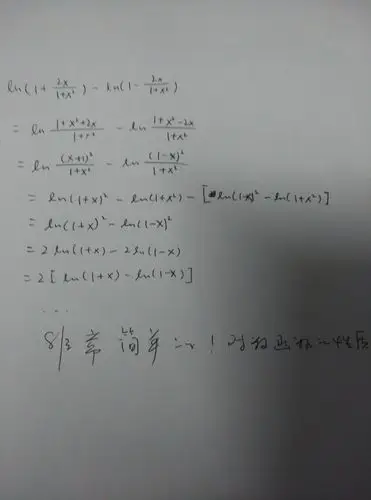 ln(1+2x/(1+x²)) - ln(1-2x/(1+x²))
= ln (1+x²+2x)/(1+x²) - ln (1+x²-2x)/(1+x²)
= ln (x+1)²/(1+x²) - ln (1-x)²/(1+x²)
= ln(1+x)² - ln(1+x²) - [ln(1-x)² - ln(1+x²)]
= ln(1+x)² - ln(1-x)²
= 2ln(1+x) - 2ln(1-x)
= 2[ln(1+x) - ln(1-x)]
...
常简单 ! 对 函 性质